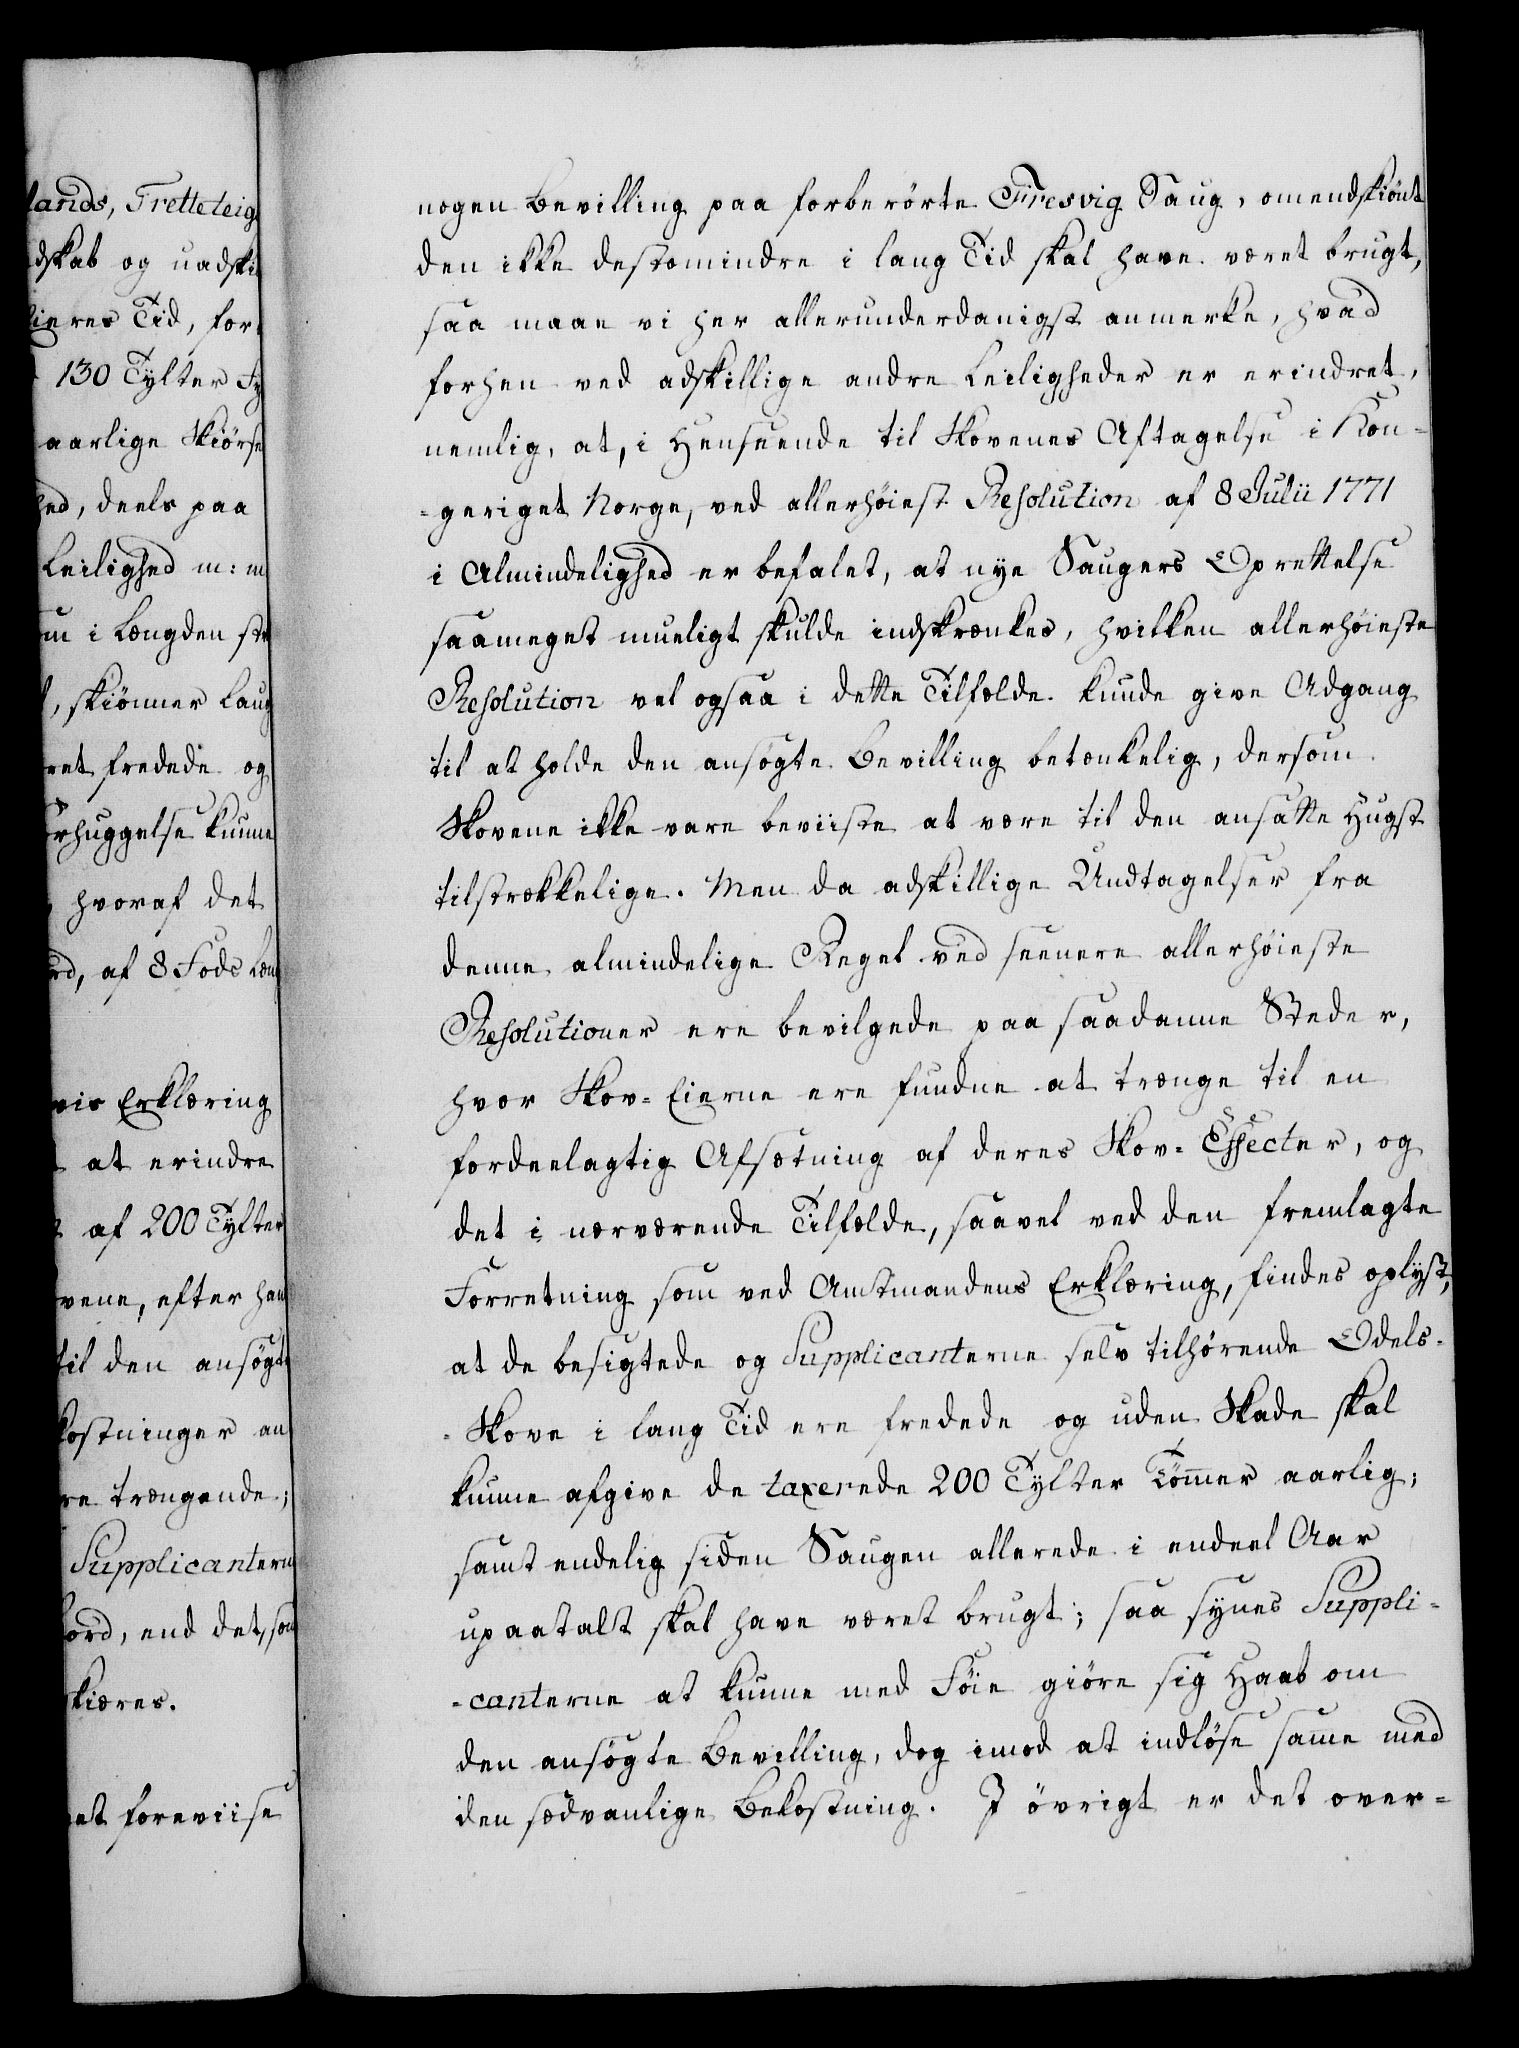 lands, Tretteteig
dskab og uadski
Eieres Tid, for
130 Tylter Fy
aarlige Skiörse
hed, deels paa
Leilighed m: m
om i Længden str
, skiönner Laug
ret fredede og
orhuggelse kunne
hvoraf det
rd, af 8 Fods Læn
vis Erklæring
at erindre
af 200 Tylter
vene, efter han
til den ansögte
kostninger an
re trængende;
Supplicantern
bord, end det, som
skiæres.
et foreviise
nogen Bevilling paa forberörte Firesvig Saug, omendskiönt
den ikke destomindre i lang Tid skal have været brugt,
saa maae vi her allerunderdanigst anmerke, hvad
forhen ved adskillige andre Leiligheder er erindret,
nemlig, at, i Henseende til Skovenes Aftagelse i Kon-
-geriget Norge, ved allerhöiest Resolution af 8 Julii 1771
i Almindelighed er befalet, at nye Saugers Oprettelse
saameget mueligt skulde indskrænkes, hvilken allerhöieste
Resolution vel ogsaa i dette Tilfælde kunde give Adgang
til at holde den ansögte Bevilling betænkelig, dersom
Skovene ikke vare beviiste at være til den ansatte Hugst
tilstrækkelige. Men da adskillige Undtagelser fra
denne almindelige Regel ved seenere allerhöieste
Resolutioner ere bevilgede paa saadanne Steder,
hvor Skov-Eierne ere fundne at trænge til en
fordeelagtig Afsætning af deres Skov-Effecter, og
det i nærværende Tilfælde, saavel ved den fremlagte
Forretning som ved Amtmandens Erklæring, findes oplyst,
at de besigtede og Supplicanterne selv tilhörende Odels-
-Skove i lang Tid ere fredede og uden Skade skal
kunne afgive de taxerede 200 Tylter Tömmer aarlig;
samt endelig siden Saugen allerede i endeel Aar
upaatalt skal have været brugt; saa synes Suppli-
-canterne at kunne med Föie giöre sig Haab om
den ansögte Bevilling, dog imod at indlöse samme med
den sædvanlige Bekostning. I övrigt er det over-